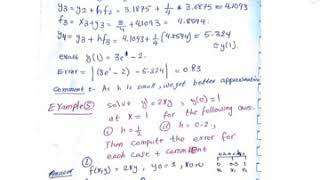 y₃ = y₂ + hf₂ = 3.1875 + 1/4 * 3.6875 = 4.1093
f₃ = x₃ + y₃ = 3/4 + 4.1093 = 4.8594.
y₄ = y₃ + hf₃ = 4.1093 + 1/4 (4.8594) = 5.324
≈ y(1).
exact y(1) = 3e¹ - 2.
Error = |(3e¹ - 2) - 5.324| = 0.83
Comment :- As h is small, we get better approximation
Example⑤ solve y' = 2xy, y(0) = 1
at x = 1 for the following
① h = 1/2 , ② h = 0.2,
Then compute the error for
each case + comment
Answer ① f(x,y) = 2xy, y₀ = 1, x₀ = 0
0 0.5 1
x₀ x₁ x₂